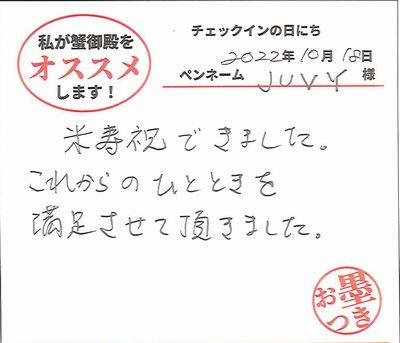 私が蟹御殿を
オススメ
します!
チェックインの日にち
2022年10月18日
ペンネーム JUVY 様
米寿祝できました。
これからのひとときを
満足させて頂きました。
お墨つき